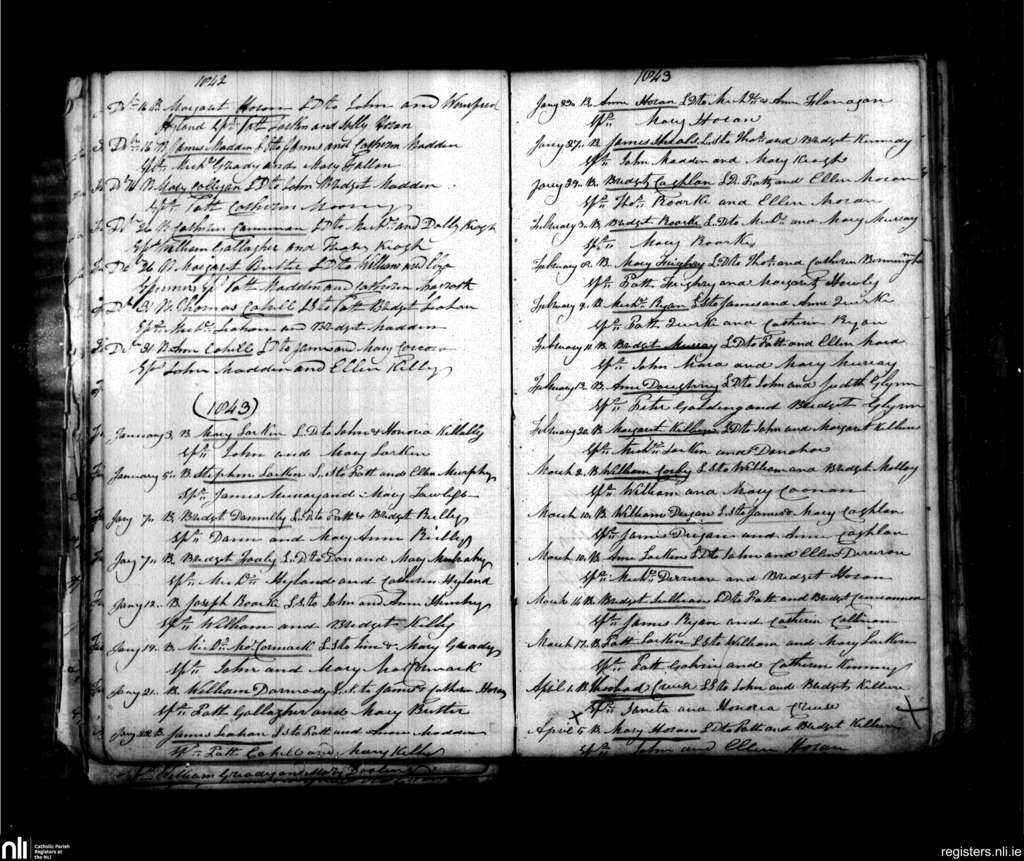 1842
Dr. 16 B. Margaret Horan L D to John and Winifred
Hyland Sps. Patt Larkin and Horan
Dr. 16 B James Madden L S to James and Catherin Madden
Sps. Michl. Grady and Mary Fallon
B. Mary Colligan L D to John Bridget Madden
Sps. Patt Catherin Mooney
Dr. 20 B Cathrin L D to Michl. and Dolly Keogh
Sps. William Gallagher and Keogh
Dr. 26 B Margaret Butler L D to William and Eliza
Sps. Patt Madden and Catherin
Dr. 31 B. Thomas Cahill L S to Patt Bridget Leahan
Sps. Michl. Leahan and Bridget Madden
Dr. 31 B Ann Cahill L D to James and Mary Corcoran
Sps John Madden and Ellin Kelly
(1843)
January 3. B Mary Larkin L D to John & Honoria Killally
Sps. John and Mary Larkin
January 5. B Stephen Larkin L S to Patt and Ellen Murphy
Sps. James Murray and Mary Lawless
Jany 7. B Bridget Donnelly L D to Patt & Bridget Reilly
Sps. Dann and Mary Anne Reilly
Jany 7. B. Bridget Healy L D to Dan and Mary
Sps. Michl. Hyland and Catherin Hyland
Jany 12. B Joseph Roarke L S to John and Ann
Sps. William and Bridget Kelly
Jany 19. B. Michl. McCormack L S to & Mary Grady
Sps. John and Mary McCormack
Jany 21. B. William Darmody L S to James & Catherin Horan
Sps. Patt Gallagher and Mary Butler
Jany 22 B James Leahan L S to Patt and Anne Madden
Sps. Patt Cahill and Mary Kelly
William Grady and Mary
1843
Jany 23. B. Ann Horan L D to Michl. & Ann Flanagan
Sps. Mary Horan
Jany 27. B. James L S to Thos. and Bridget Kennedy
Sps. John Madden and Mary Keogh
Jany 29. B. Bridget Coghlan L D. Patt and Ellen Moran
Sps. Thos. Roarke and Ellen Moran
February 3. B. Bridget Roarke L D to Michl. and Mary Murray
Sps. Mary Roarke
February B. Mary Feighry L D to Thos. and Catherin Birmingham
Sps. Patt Feighry and Margaret Howley
February 9. B. Michl. Ryan L S to James and Anne Quirke
Sps. Patt Quirke and Catherin Ryan
February 11. B. Bridget Murray L D to Patt and Ellen Mara
Sps. John Mara and Mary Murray
February 12. B. Ann Doughney L D to John and Judith Glynn
Sps. Peter Golding and Bridget Glynn
February 20. B. Margaret Killeen L D to John and Margaret Killeen
Sps. Michl. Larkin and Donahoe
March 2. B. William Cosby L S to William and Bridget Molloy
Sps. William and Mary Coonan
March 10. B. William Deegan L S to James & Mary Coghlan
Sps. James Deegan and Anne Coghlan
March 12. B. Ann Larkin L D to John and Ellen Derwin
Sps. Michl. Derwin and Bridget Horan
March 14 B. Bridget Sullivan L D to Patt and Bridget Concannon
Sps. James Ryan and Catherin
March 17. B. Patt Larkin L S to William and Mary Larkin
Sps. Patt and Catherin Kenney
April 1. B. Cruise L S to John and Bridget Killeen
Sps. and Honoria Cruise
April 5 B. Mary Horan L D to Patt and Bridget Killeen
Sps. John and Ellen Horan
nli
Catholic Parish
Registers at
the NLI
registers.nli.ie